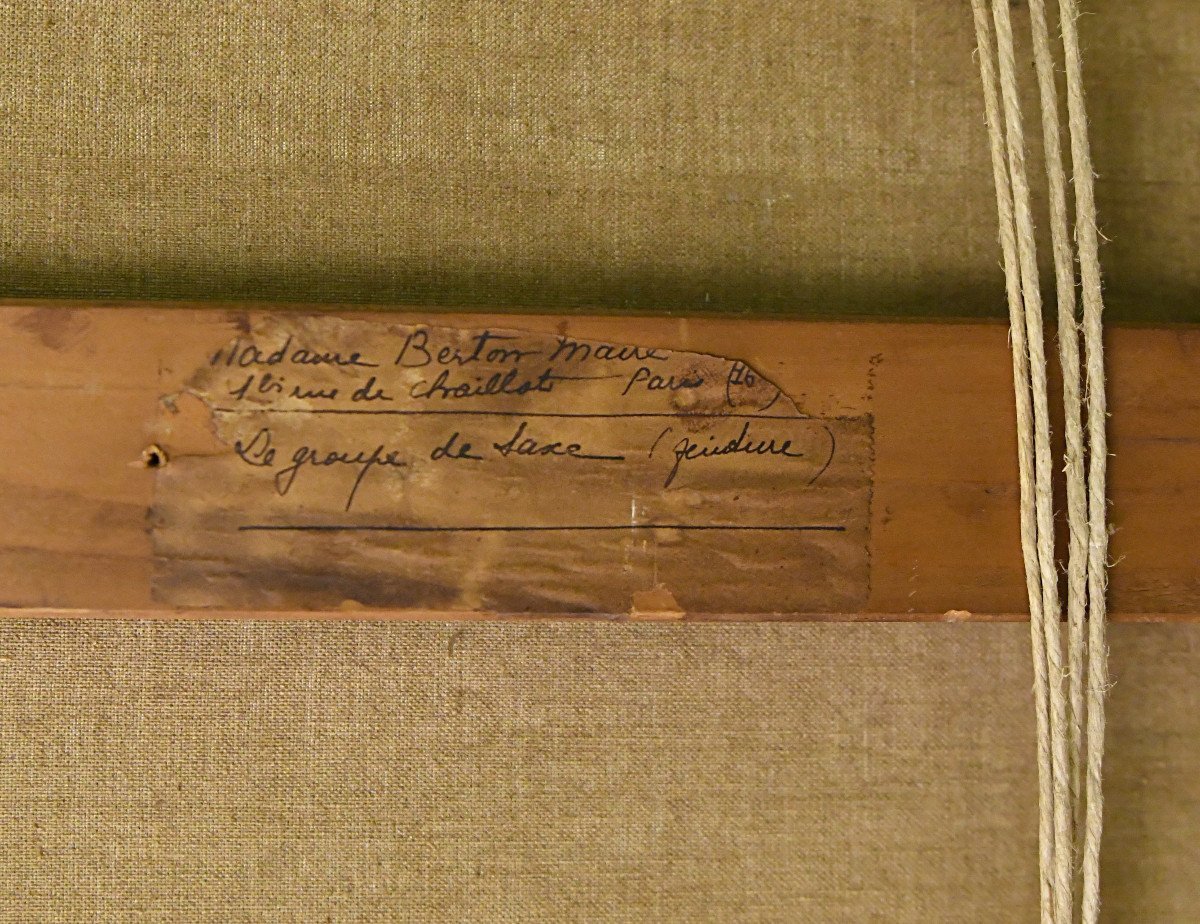 Madame Berton Maire
1bis rue de Chaillot Paris (16)
Le groupe de Saxe (peinture)